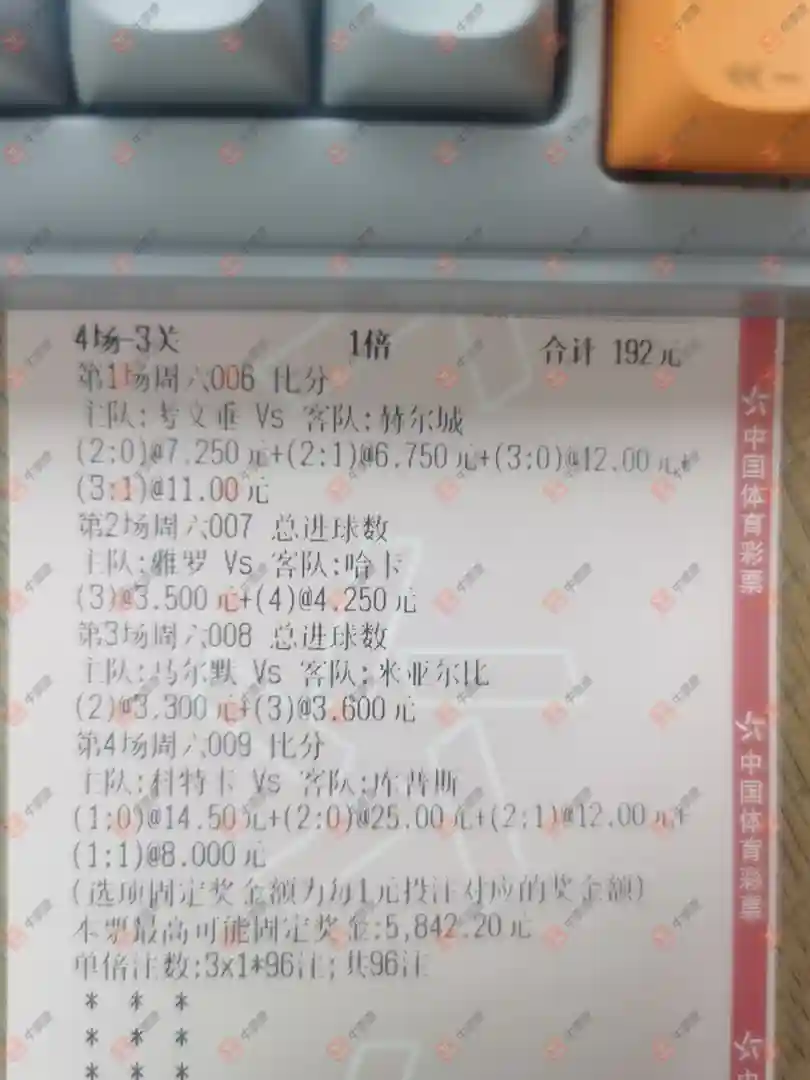 4场-3关 1倍 合计 192元
第1场周六006 比分
主队:考文垂 Vs 客队:赫尔城
(2:0)@7.250元+(2:1)@6.750元+(3:0)@12.00元+
(3:1)@11.00元
第2场周六007 总进球数
主队:雅罗 Vs 客队:哈卡
(3)@3.500元+(4)@4.250元
第3场周六008 总进球数
主队:马尔默 Vs 客队:米亚尔比
(2)@3.300元+(3)@3.600元
第4场周六009 比分
主队:科特卡 Vs 客队:库普斯
(1:0)@14.50元+(2:0)@25.00元+(2:1)@12.00元+
(1:1)@8.000元
(选项固定奖金额为每1元投注对应的奖金额)
本票最高可能固定奖金:5,842.20元
单倍注数:3x1*96注;共96注
* * *
* * *
* * *
中国体育彩票
中国体育彩票
中